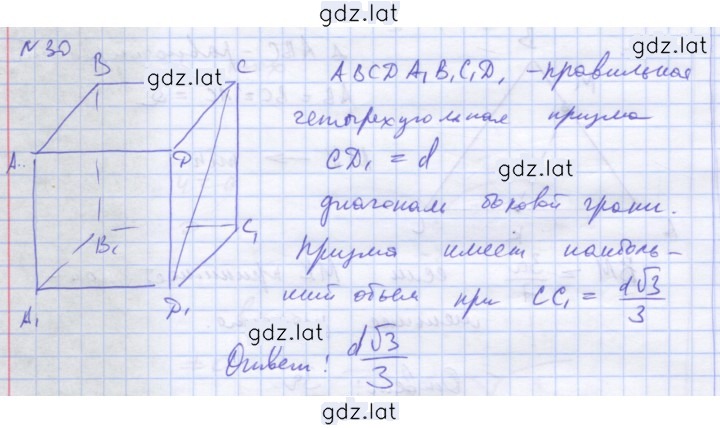 gdz.lat
N 30
B
gdz.lat
C
ABCDA₁B₁C₁D₁ - правильная
четырехугольная призма
A
D
CD₁ = d
gdz.lat
диагональ боковой грани.
B₁
C₁
Призма имеет наиболь-
ший объем при CC₁ = d√3/3
A₁
D₁
gdz.lat
Ответ: d√3/3
gdz.lat